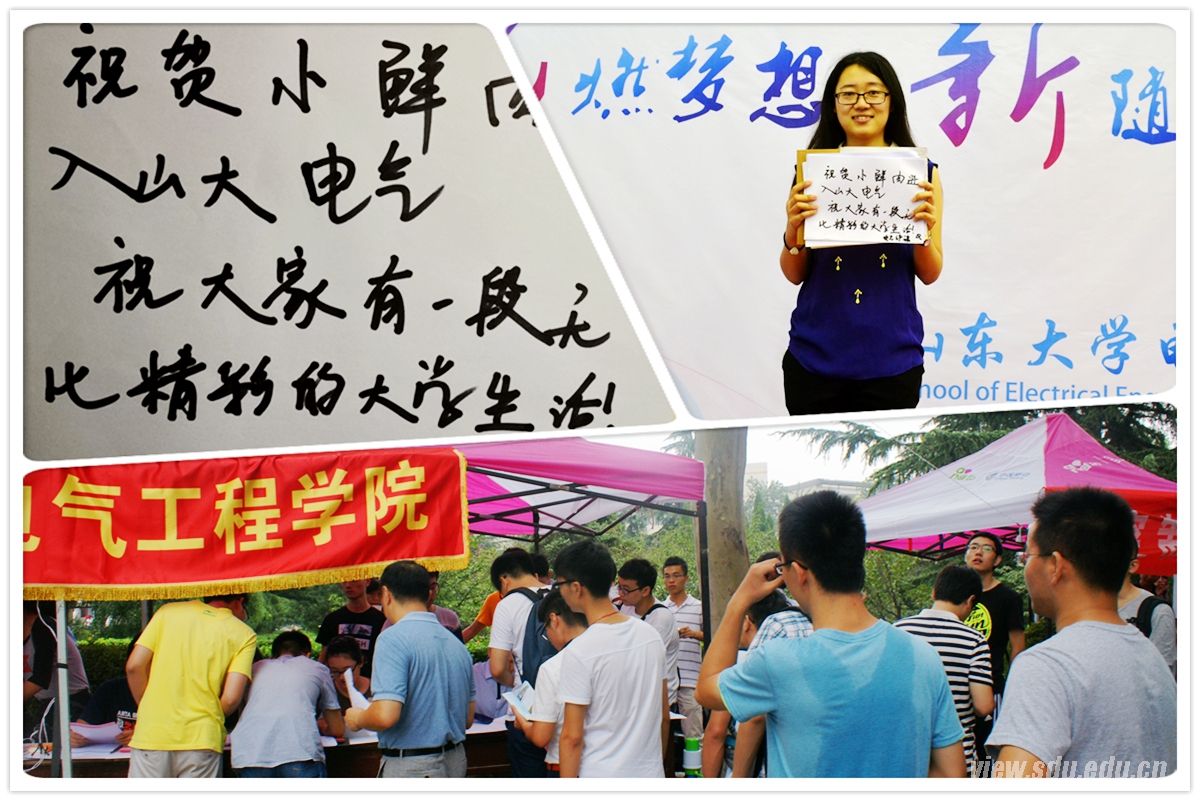 祝贺小鲜肉
入山大电气
祝大家有一段无
比精彩的大学生活!
燃梦想 新 随
祝贺小鲜肉进
入山大电气
祝大家有一段无
比精彩的大学生活!
山东大学电
hool of Electrical
气工程学院
view.sdu.edu.cn